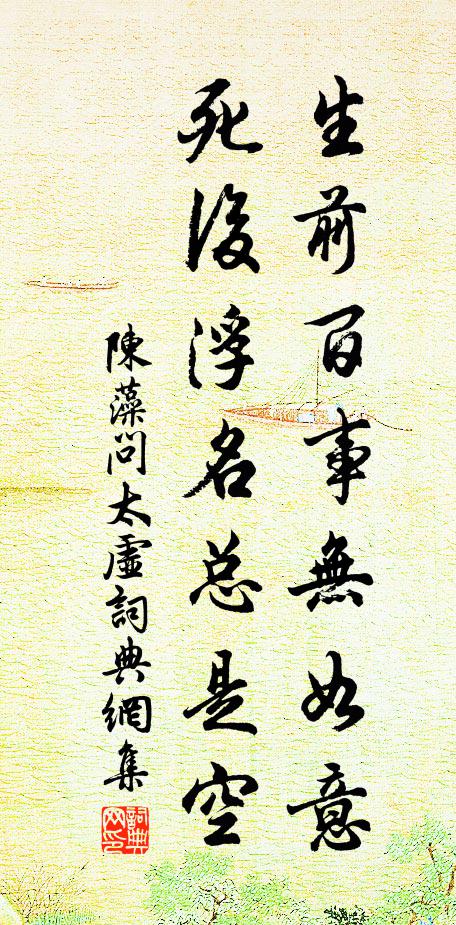 生前百事無如意
死後浮名总是空
陳藻問太虛詞典網集
詞典網印